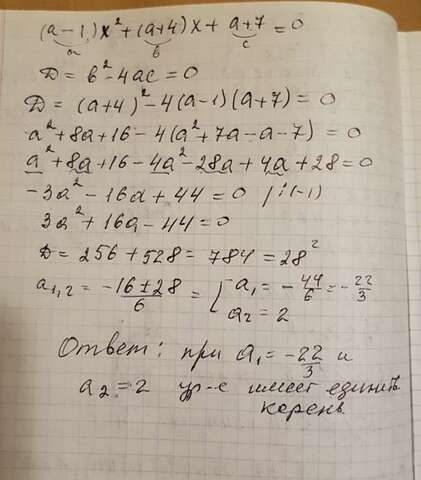 (a-1)x² + (a+4)x + a+7 = 0
a b c
D = b² - 4ac = 0
D = (a+4)² - 4(a-1)(a+7) = 0
a² + 8a + 16 - 4(a² + 7a - a - 7) = 0
a² + 8a + 16 - 4a² - 28a + 4a + 28 = 0
-3a² - 16a + 44 = 0 /:(-1)
3a² + 16a - 44 = 0
D = 256 + 528 = 784 = 28²
a₁,₂ = (-16 ± 28)/6 = [ a₁ = -44/6 = -22/3
a₂ = 2
Ответ: при a₁ = -22/3 и
a₂ = 2 ур-е имеет единств.
корень